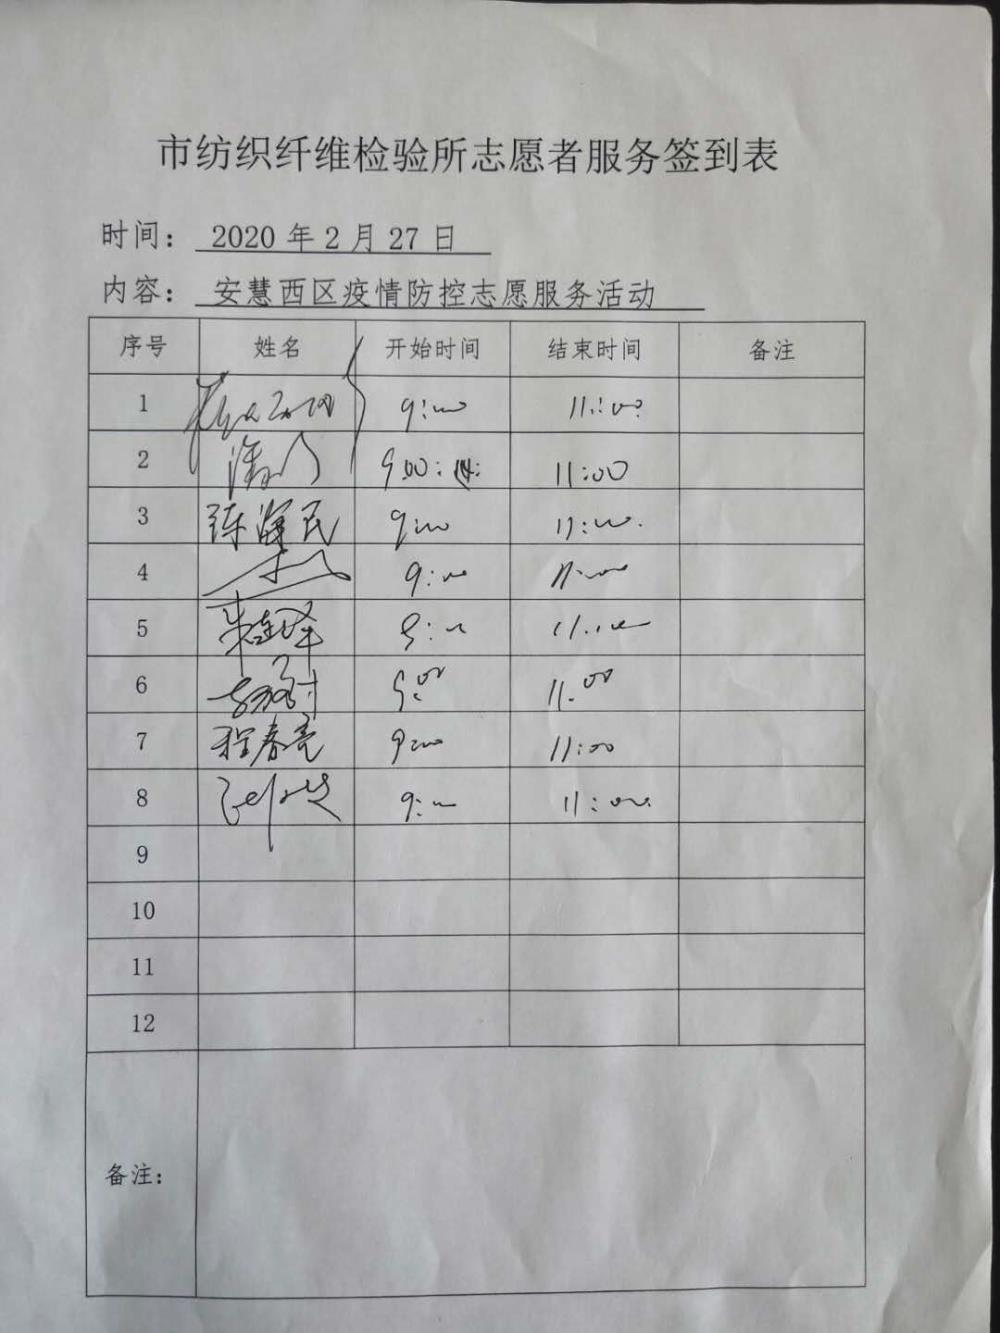 市纺织纤维检验所志愿者服务签到表
时间： 2020 年 2 月 27 日
内容： 安慧西区疫情防控志愿服务活动
序号 姓名 开始时间 结束时间 备注
1 9:00 11:00
2 9:00 11:00
3 陈海民 9:00 11:00
4 9:00 11:00
5 9:00 11:00
6 9:00 11:00
7 程春亮 9:00 11:00
8 9:00 11:00
9
10
11
12
备注：